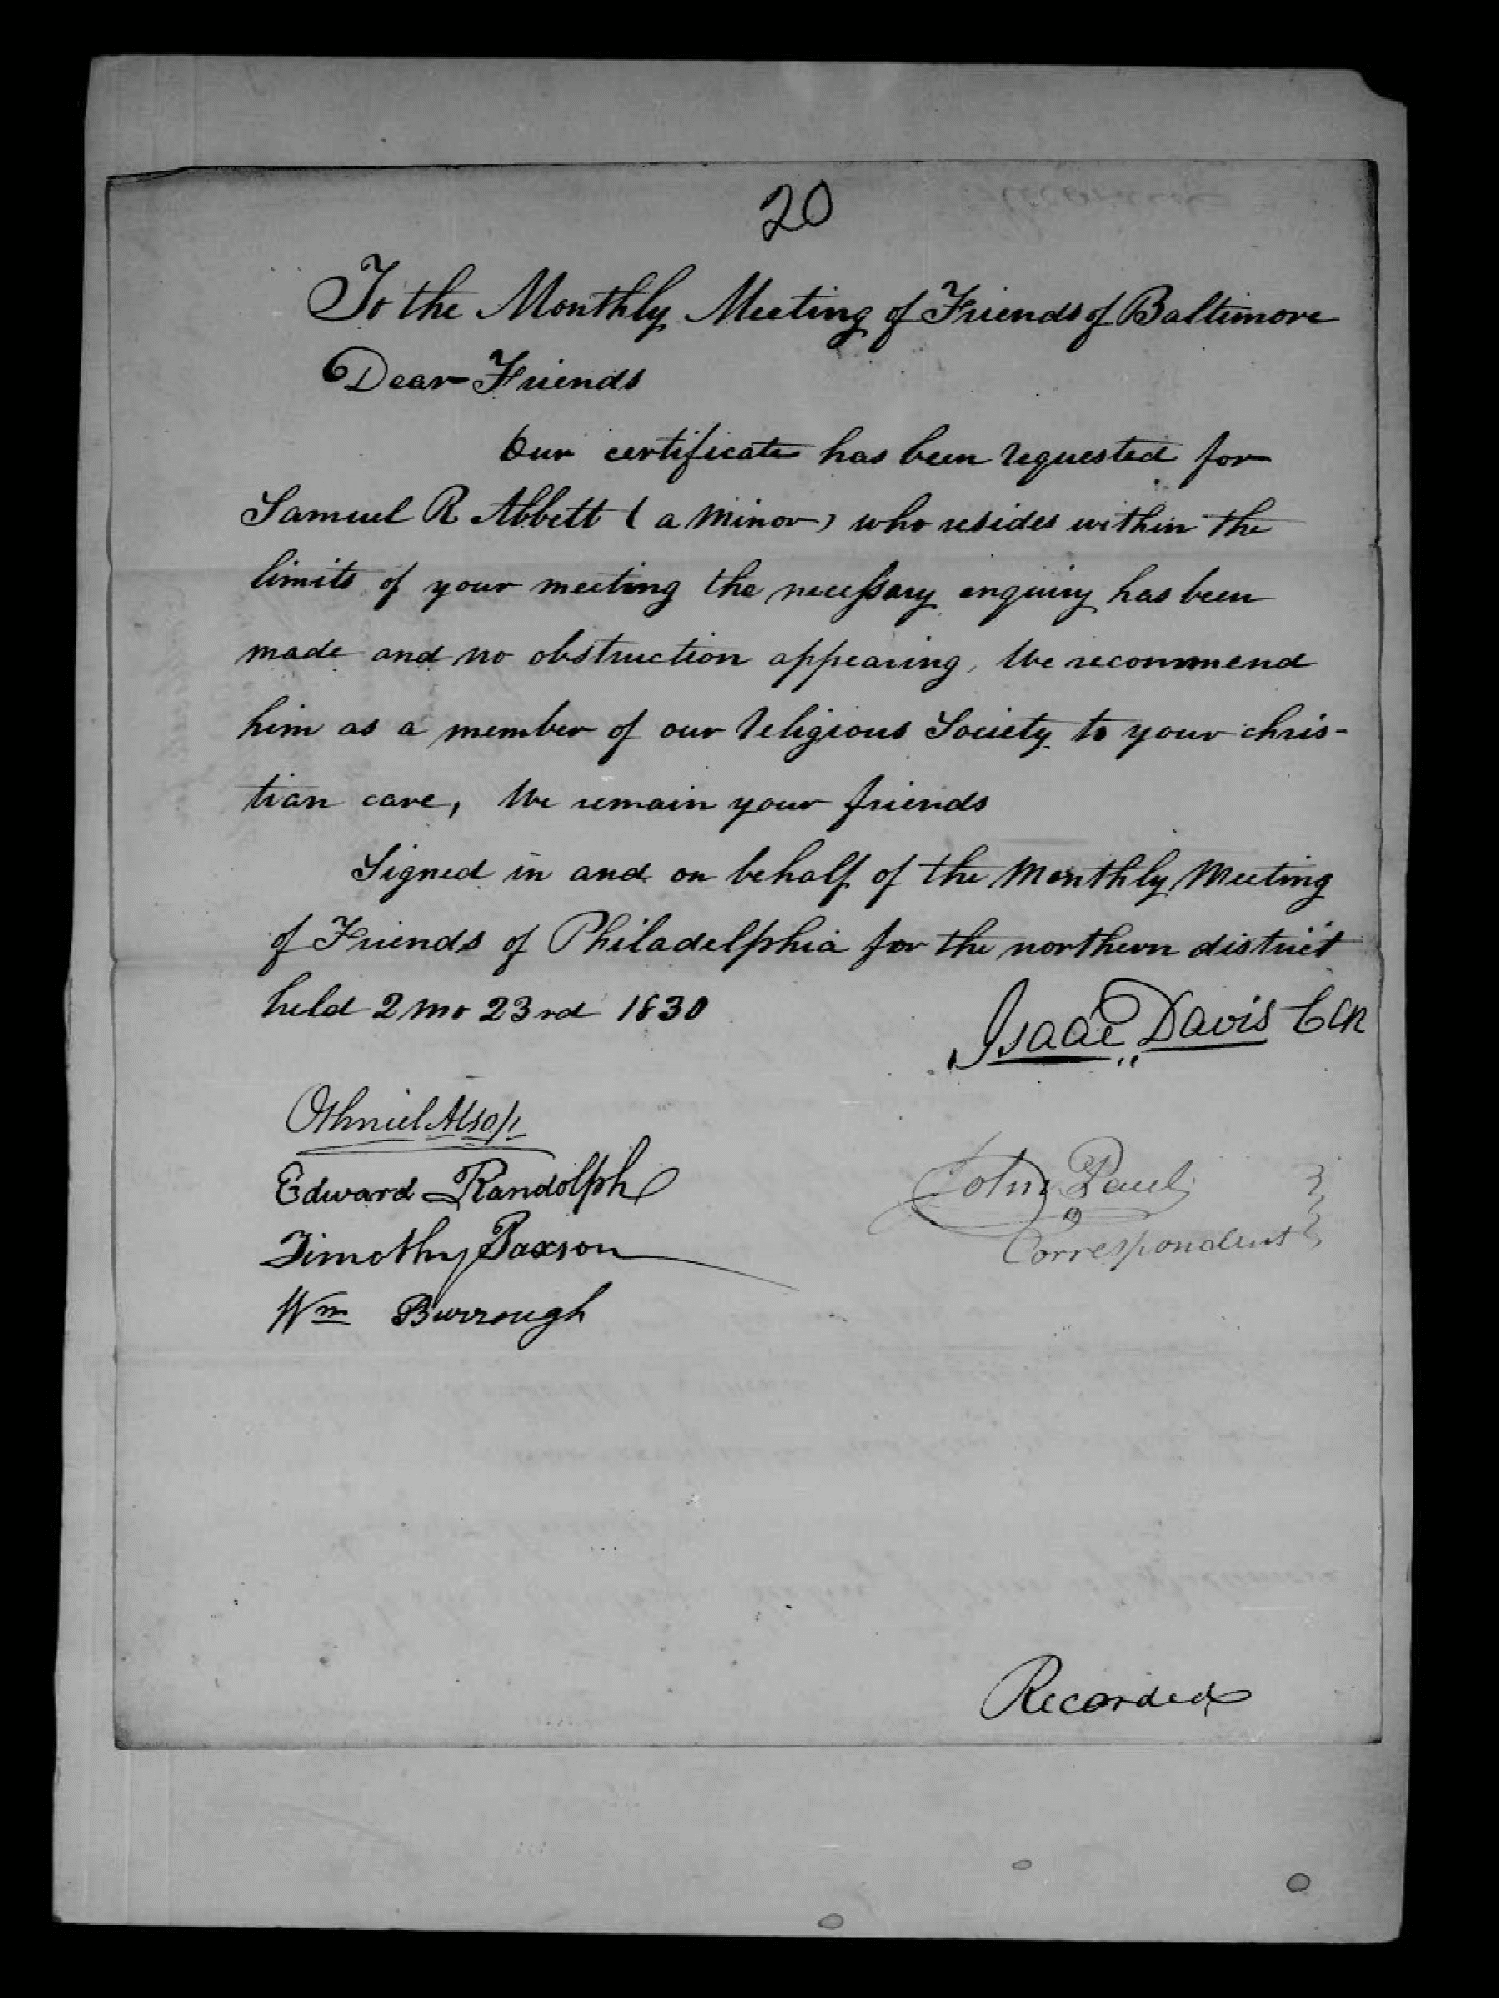 20
To the Monthly Meeting of Friends of Baltimore
Dear Friends
Our certificate has been requested for
Samuel R Abbett ( a minor ) who resides within the
limits of your meeting the necessary enquiry has been
made and no obstruction appearing, We recommend
him as a member of our religious Society to your chris-
tian care, We remain your friends
Signed in and on behalf of the Monthly Meeting
of Friends of Philadelphia for the northern district
held 2 mo 23rd 1830
Isaac Davis Clk
Othniel Alsop
Edward Randolph
Timothy Paxson
Wm Burrough
John Paul
Correspondent
Recorded